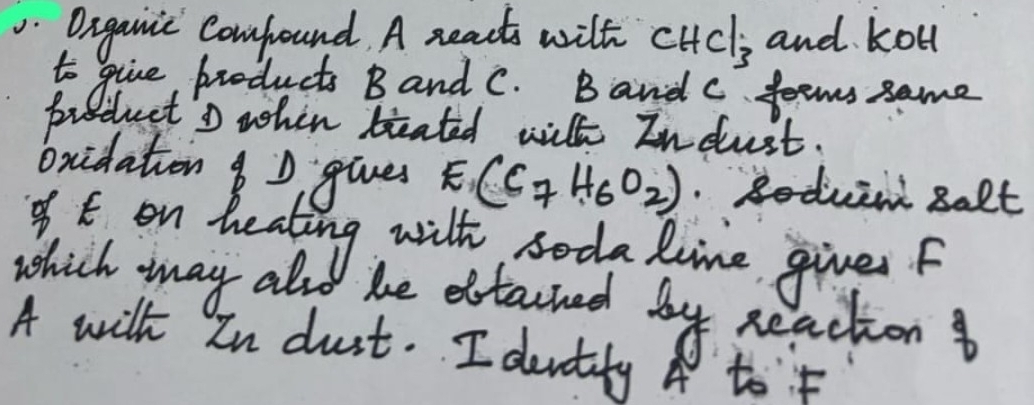 5. Organic Compound A reacts with CHCl3 and KOH
to give products B and C. B and C forms same
product D when treated with Zn dust.
Oxidation of D gives E (C7H6O2). Sodium salt
of E on heating with soda lime gives F
which may also be obtained by reaction of
A with Zn dust. Identify A to F